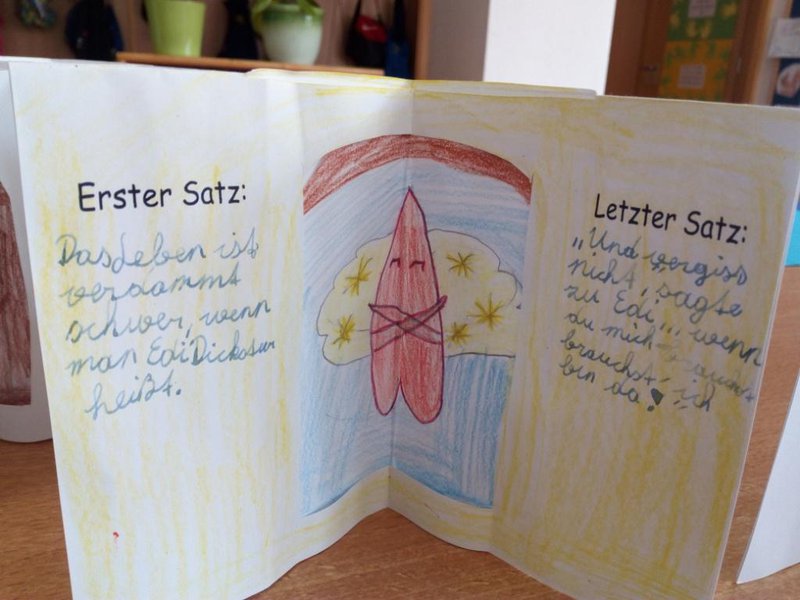 Erster Satz:
Das Leben ist
verdammt
schwer, wenn
man Edi Dickosaur
heißt.
Letzter Satz:
„Und vergiss
nicht," sagte
zu Edi „, wenn
du mich brauchst
brauchst, ich
bin da!"